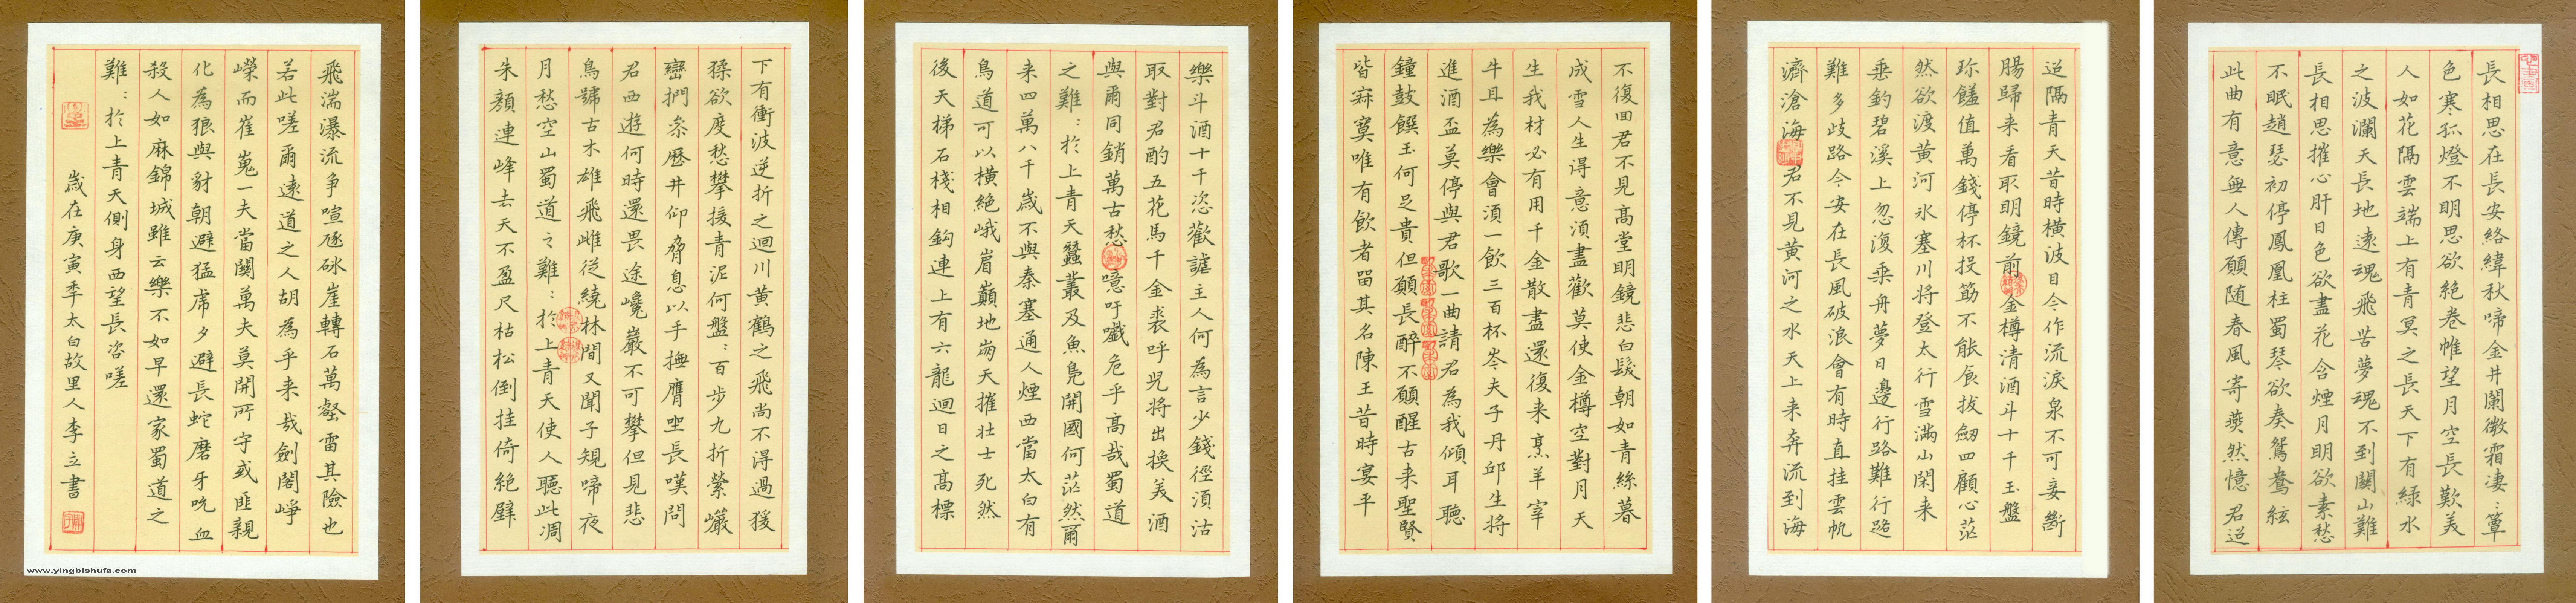 長相思在長安絡緯秋啼金井闌微霜凄〻簟
色寒孤燈不明思欲絕卷帷望月空長歎美
人如花隔雲端上有青冥之長天下有緑水
之波瀾天長地遠魂飛苦夢魂不到關山難
長相思摧心肝日色欲盡花含煙月明欲素愁
不眠趙瑟初停鳳凰柱蜀琴欲奏鴛鴦絃
此曲有意無人傳願随春風寄燕然憶君迢
迢隔青天昔時橫波目今作流淚泉不可妾斷
腸歸来看取明鏡前金樽清酒斗十千玉盤
珎饈值萬錢停杯投筯不能食拔劒四顧心茫
然欲渡黄河氷塞川将登太行雪滿山閑来
乗釣碧溪上忽復乗舟夢日邊行路難行路
難多歧路今安在長風破浪會有時直挂雲帆
濟滄海君不見黄河之水天上来奔流到海
不復回君不見高堂明鏡悲白髮朝如青絲暮
成雪人生得意須盡歡莫使金樽空對月天
生我材必有用千金散盡還復来烹羊宰
牛且為樂會湏一飲三百杯岑夫子丹邱生将
進酒盃莫停與君歌一曲請君為我傾耳聽
鐘鼓饌玉何足貴但願長醉不願醒古来聖賢
皆寂寞唯有飲者留其名陳王昔時宴平
樂斗酒十千恣歡謔主人何為言少錢徑湏沽
取對君酌五花馬千金裘呼児将出換美酒
與爾同銷萬古愁噫吁戲危乎高哉蜀道
之難〻於上青天蠶叢及魚鳧開國何茫然爾
来四萬八千歲不與秦塞通人煙西當太白有
鳥道可以橫絕峨眉巔地崩天摧壮士死然
後天梯石棧相鈎連上有六龍迴日之高標
下有衝波逆折之迴川黄鶴之飛尚不得過猨
猱欲度愁攀援青泥何盤〻百步九折縈巖
巒捫叅歷井仰脅息以手撫膺坐長嘆問
君西遊何時還畏途巉巖不可攀但見悲
鳥號古木雄飛雌從繞林間又聞子規啼夜
月愁空山蜀道之難〻於上青天使人聽此凋
朱顏連峰去天不盈尺枯松倒挂倚絕壁
飛湍瀑流爭喧豗砯崖轉石萬壑雷其險也
若此嗟爾遠道之人胡為乎来哉劍閣崢
嶸而崔嵬一夫當關萬夫莫開所守或匪親
化為狼與豺朝避猛虎夕避長蛇磨牙吮血
殺人如麻錦城雖云樂不如早還家蜀道之
難〻於上青天側身西望長咨嗟
歲在庚寅季太白故里人李立書
www.yingbishufa.com